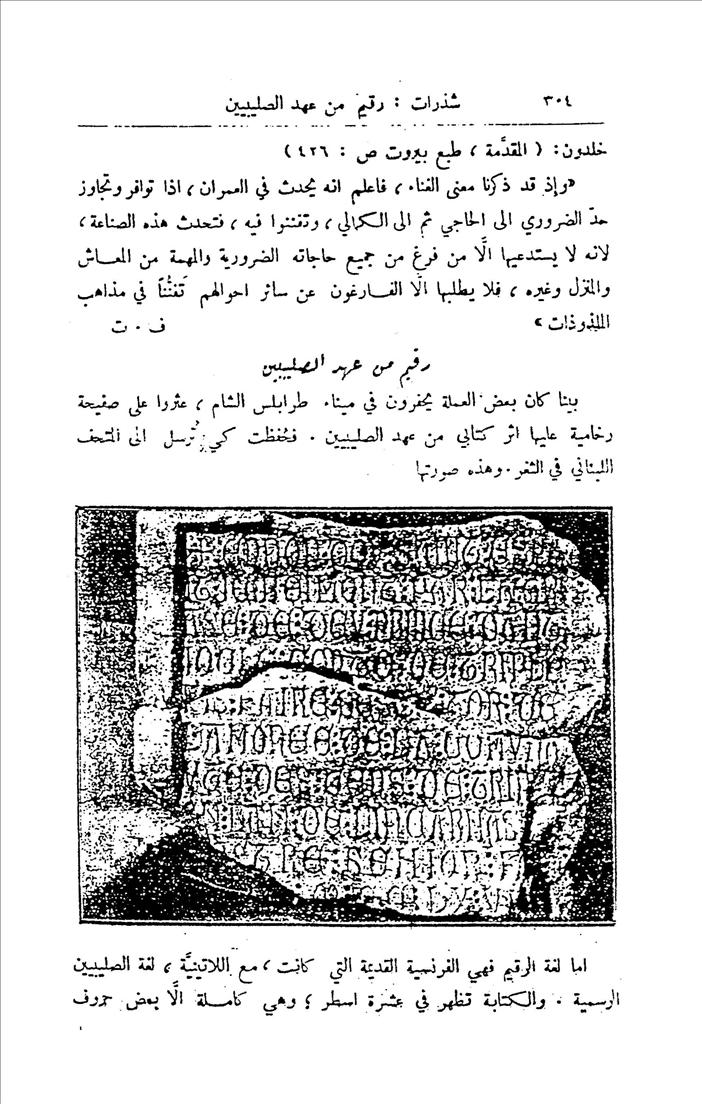 ٣٠٤ شذرات : رقيم من عهد الصليبيين
خلدون : ( المقدَّمة ، طبع بيروت ص : ٤٢٦ )
«وإذ قد ذكرنا معنى الغناء ، فاعلم انه يحدث في العمران ، اذا توافر وتجاوز
حدّ الضروري الى الحاجي ثم الى الكمالي ، وتفننوا فيه ، فتحدث هذه الصناعة ،
لانه لا يستدعيها الَّا من فرغ من جميع حاجاته الضرورية والمهمة من المعاش
والمنزل وغيره ، فلا يطلبها الّا الفارغون عن سائر احوالهم تَفنُّناً في مذاهب
الملذوذات » ف . ت
رقيم من عهد الصليبيين
بينا كان بعض العملة يحفرون في ميناء طرابلس الشام ، عثروا على صفيحة
رخامية عليها اثر كتابي من عهد الصليبيين . فحُفظت كي تُرسل الى المتحف
اللبناني في الثغر . وهذه صورتها
: SAINT : ESPE
PAR : LA : GR
ASE : DE :
CONTE : DE : TRIPLE
FAIRE : DE
LA MOPCIE : DE LA : COMVN
DES : GENS : DE : TRIP
DE LINCARNAS
TRE : SENIOR :
اما لغة الرقيم فهي الفرنسية القديمة التي كانت ، مع اللاتينيَّة ، لغة الصليبيين
الرسمية . والكتابة تظهر في عشرة اسطر ؛ وهي كاملة الَّا بعض حروف